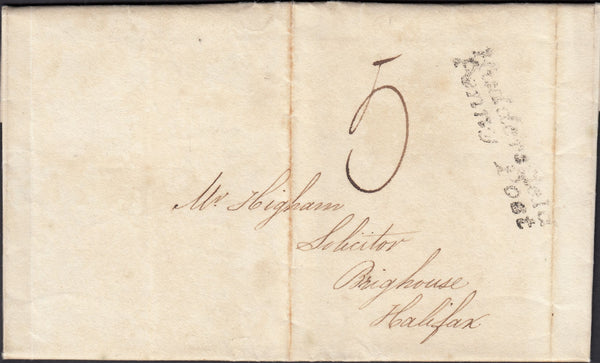 5
Huddersfield
Penny Post
Mr Higham
Solicitor
Brighouse
Halifax